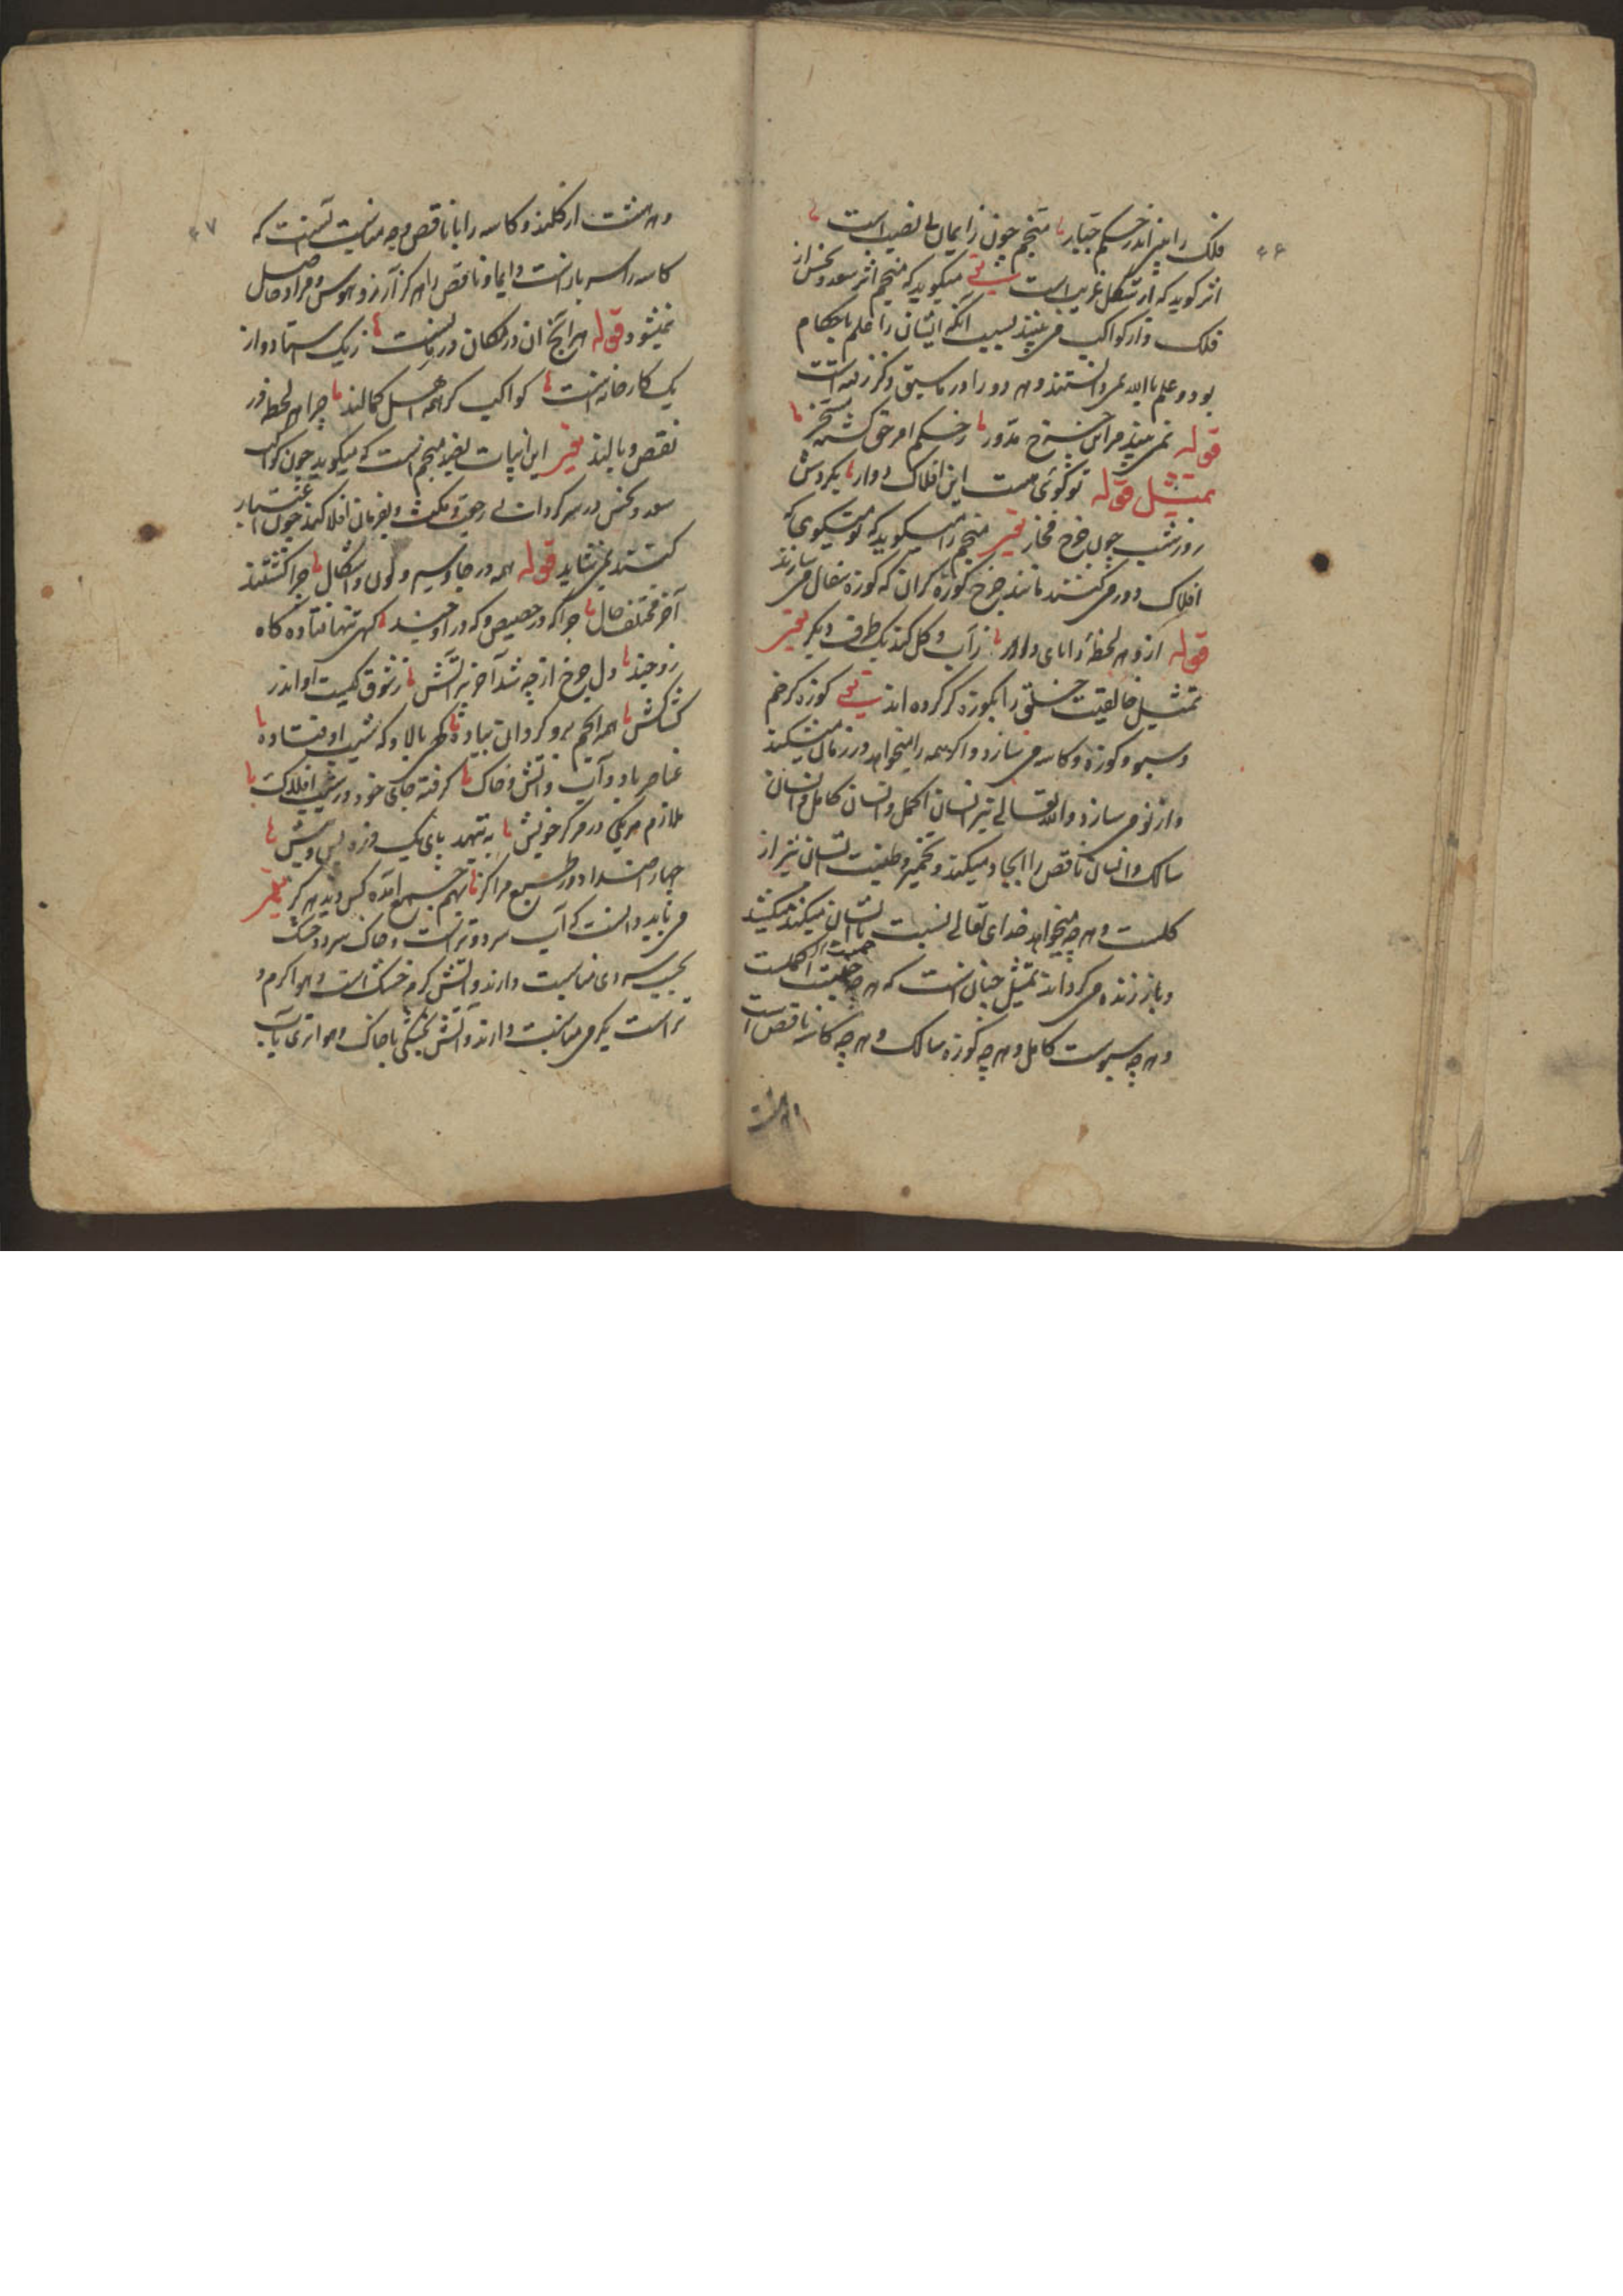 ۴۶
فلک را بینی اندر حکم جبار منجم چون ز ایمان بی نصیب است
اثر گوید که از شکل غریب است یعنی میگوید که منجم اثر سعد و نحس از
فلک و از کواکب می بیند بسبب آنکه ایشان را علم باحکام
بود و علم باالله نمی دانستند و هر دو را در ماسبق ذکر رفته است
قوله نمی بیند مر این چرخ مدور ز حکم امر حق گشته مسخر
تمثیل قوله تو گوئی هست این افلاک دوار بگردش
روز و شب چون چرخ فخار یعنی منجم را میگوید که تو میگوی که
افلاک دور می کنند مانند چرخ کوزه گران که کوزه سفال می سازند
قوله ازو هر لحظه دانای داور ز آب و گل کند یک ظرف دیگر یعنی
تمثیل خالقیت خلق را بکوزه گر کرده اند یعنی کوزه گر خم
و سبو و کوزه و کاسه می سازد و اگر همه را میخواهد در زمان میشکند
و از نو می سازد و الله تعالی نیز انسان اکمل و انسان کامل و انسان
سالک و انسان ناقص را ایجاد میکند و تخمیر و طینت انسان نیز از
گلست و هر چه میخواهد خدای تعالی نسبت بانسان میکند میکشد
و باز زنده می گرداند تمثیل چنان است که هر چه خمست اکملست
و هر چه سبوست کامل و هر چه کوزه سالک و هر چه کاسه ناقص است
۴۷
و هر هشت از گلند و کاسه را با ناقص چه مناسبت آنست که
کاسه را سر باز است دایما و ناقص را هرگز آرزو و هوس و مراد حاصل
نمیشود قوله هر آنچ آن در مکان و در زمانست ز یک استاد و از
یک کارخانه است کواکب گر همه اهل کمالند چرا هر لحظه در
نقص و وبالند یعنی این ابیات بقید منجم است که میگوید چون کواکب
سعد و نحس در سرگردانی بی رحق و مکث و بفرمان افلاکند چون اعتبار
کنند نمی شاید قوله همه در جا و سیر و لون و اشکال چرا گشتند
آخر مختلف حال چرا گه در حضیض و گه در اوجند گهی تنها فتاده گاه
زوجند دل چرخ از چه شد آخر پر آتش ز شوق کیست او اندر
کشاکش همه انجم برو گردان پیاده گهی بالا و گه شیب اوفتاده
عناصر باد و آب و آتش و خاک گرفته جای خود در شیب افلاک
ملازم هر یکی در مرکز خویش بننهد پای یک ذره پس و پیش
چهار اضداد در طبع مراکز بهم جمع آمده کس دید هرگز یعنی
می باید دانست که آب سرد و تر است و خاک سرد و خشک
بحسب سردی مناسبت دارند و آتش گرم خشک است و هوا گرم و
تر است بگرمی مناسبت دارند و آتش بخشکی با خاک و هوا بتری با آب